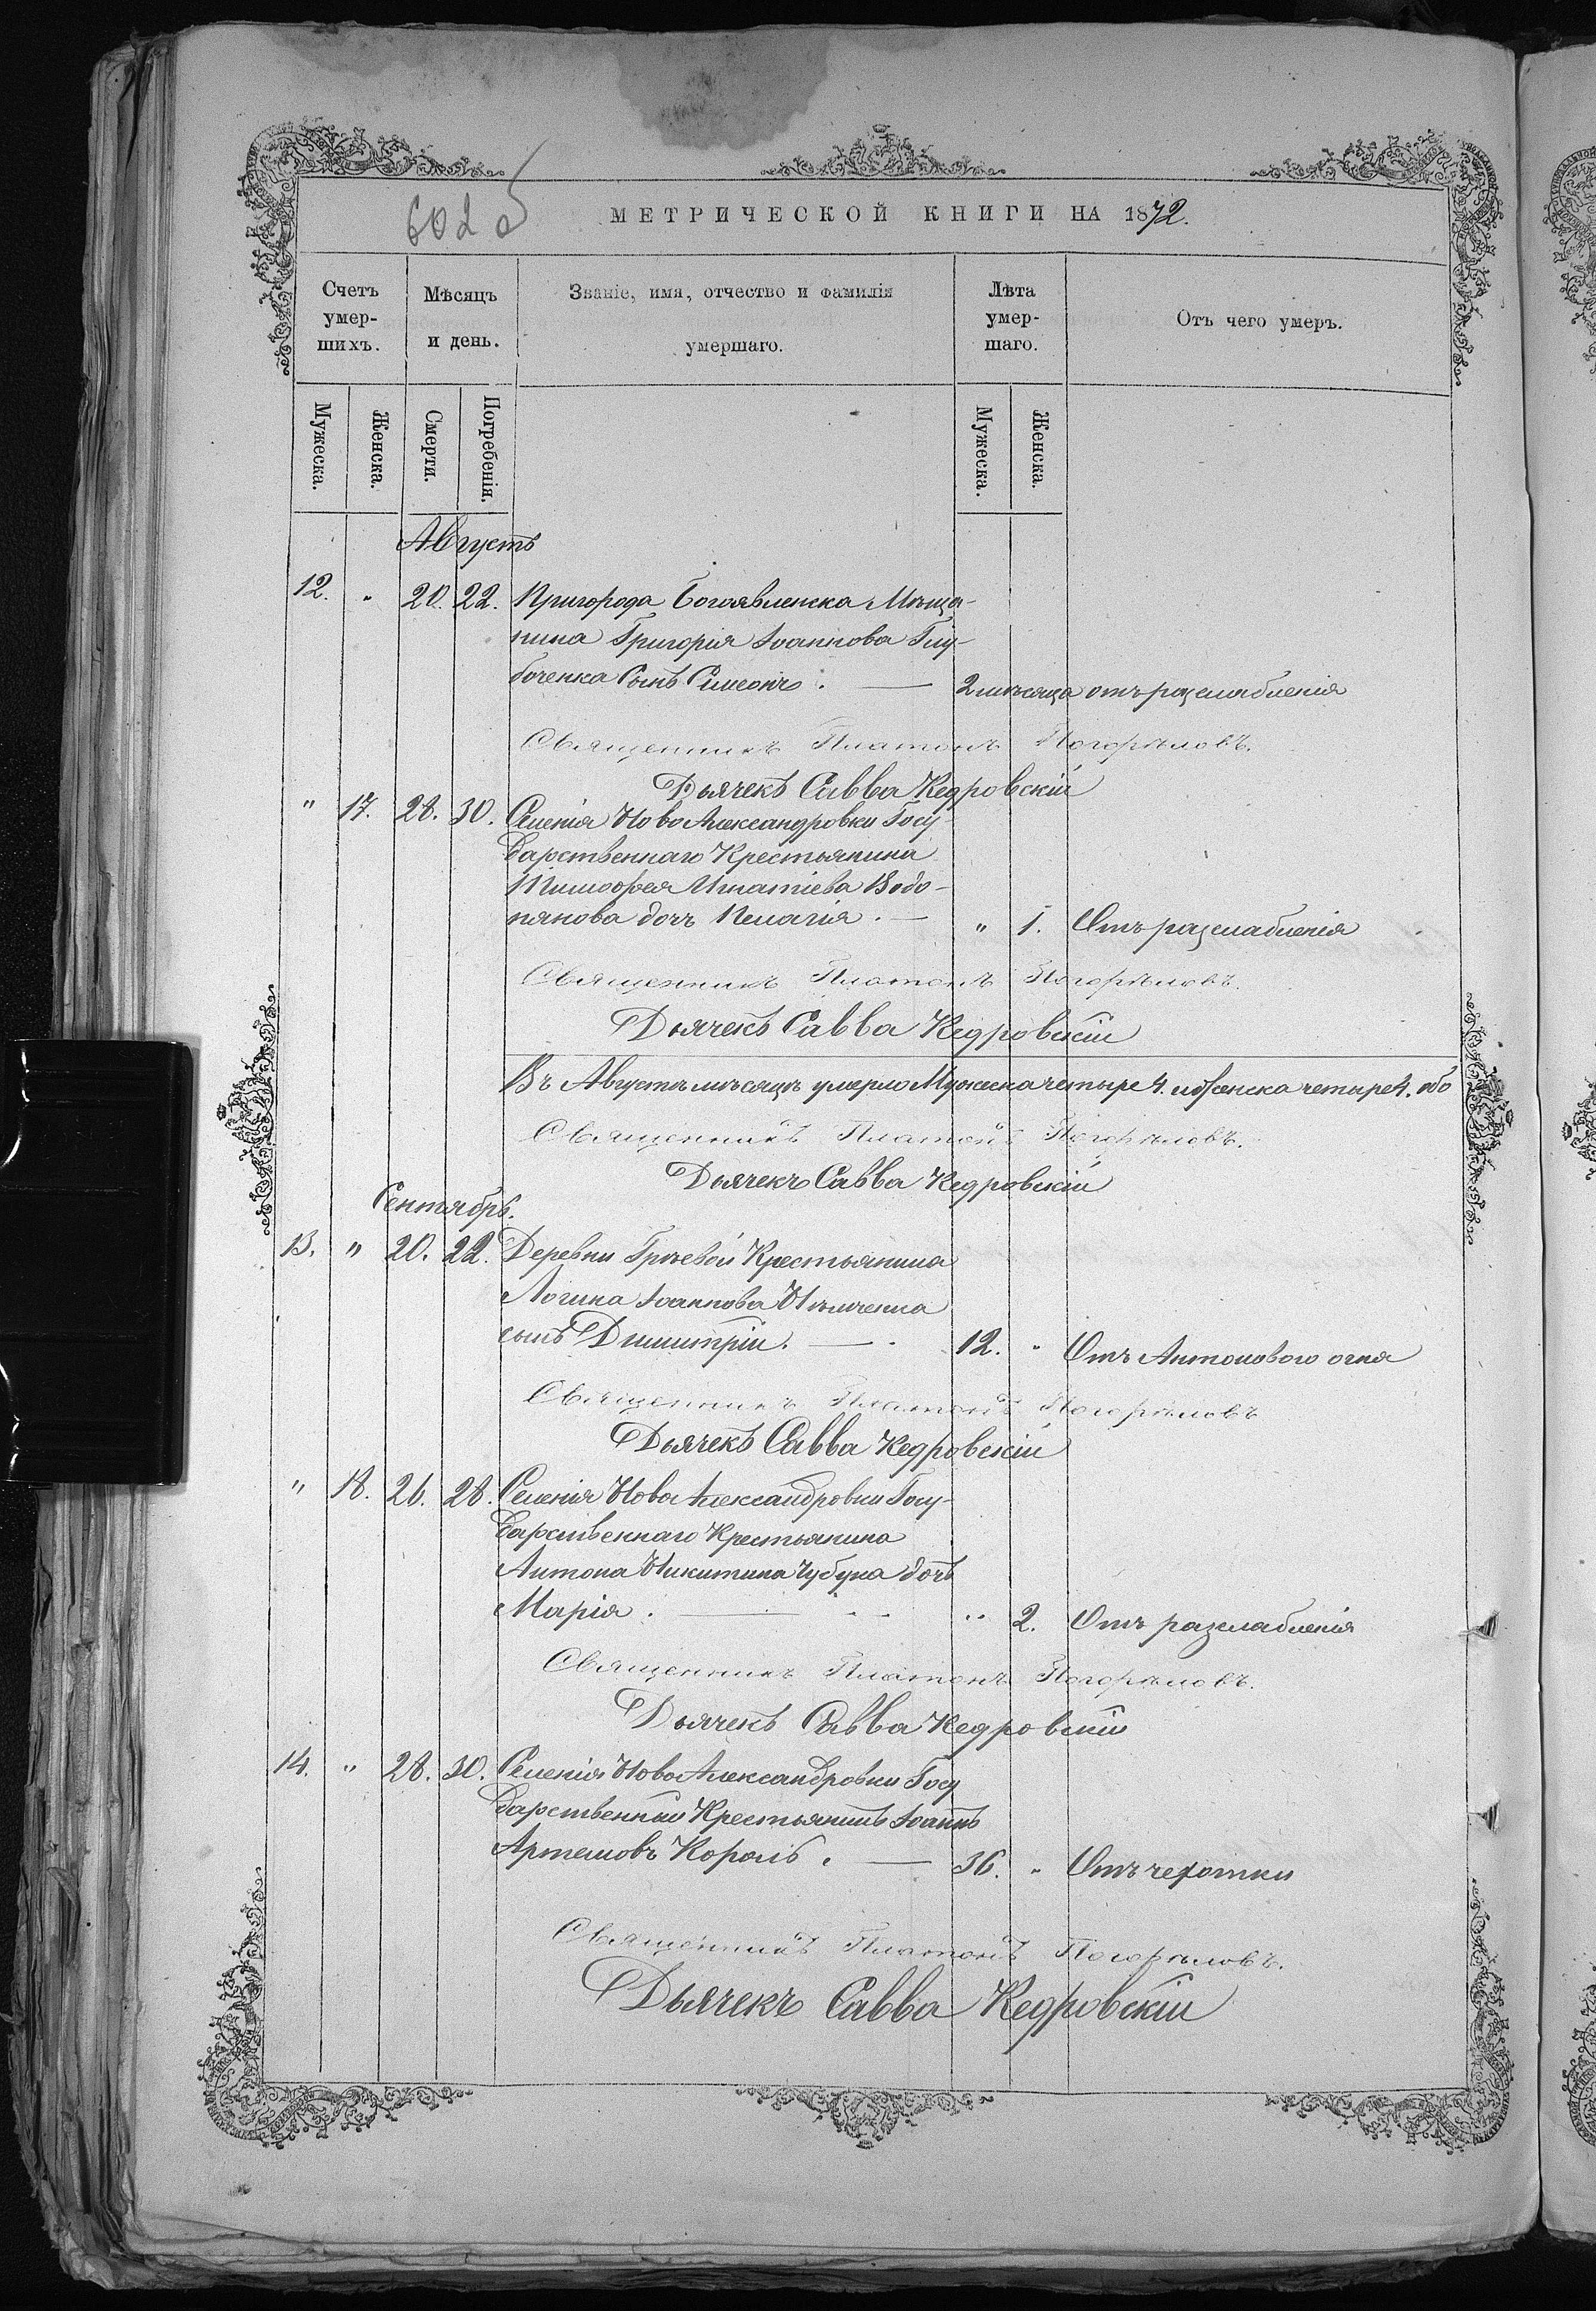 602 об
МЕТРИЧЕСКОЙ КНИГИ НА 1872.
Счетъ умер-шихъ.
Мѣсяцъ и день.
Званіе, имя, отчество и фамилія умершаго.
Лѣта умер-шаго.
Отъ чего умеръ.
Мужеска.
Женска.
Смерти.
Погребенія.
Мужеска.
Женска.
Августъ
12. " 20. 22. Пригорода Богоявленска Мѣща-
нина Григорія Іоаннова Глу-
боченка Сынъ Симеонъ. — 2 мѣсяца отъ разслабленія
Священникъ Платонъ Погорѣловъ.
Дьячекъ Савва Кедровскій
" 17. 28. 30. Селенія Ново Александровки Госу-
дарственнаго Крестьянина
Тимофея Игнатіева Водо-
пянова дочъ Пелагія. — " 1. Отъ разслабленія
Священникъ Платонъ Погорѣловъ.
Дьячекъ Савва Кедровскій
Въ Августѣ мѣсяцѣ умерло Мужеска четыре 4. женска четыре 4. обо
Священникъ Платонъ Погорѣловъ.
Дьячекъ Савва Кедровскій
Сентябрь.
13. " 20. 22. Деревни Греевой Крестьянина
Логина Іоаннова
сынъ Димитрій. — 12. " Отъ Антонового огня
Священникъ Платонъ Погорѣловъ
Дьячекъ Савва Кедровскій
" 18. 26. 28. Селенія Ново Александровки Госу-
дарственнаго Крестьянина
Антона Никитина Чубука дочъ
Марія. — " 2. Отъ разслабленія
Священникъ Платонъ Погорѣловъ.
Дьячекъ Савва Кедровскій
14. " 28. 30. Селенія Ново Александровки Госу
дарственный Крестьянинъ Іоаннъ
Артемовъ Король. — 36. " Отъ чехотки
Священникъ Платонъ Погорѣловъ.
Дьячекъ Савва Кедровскій